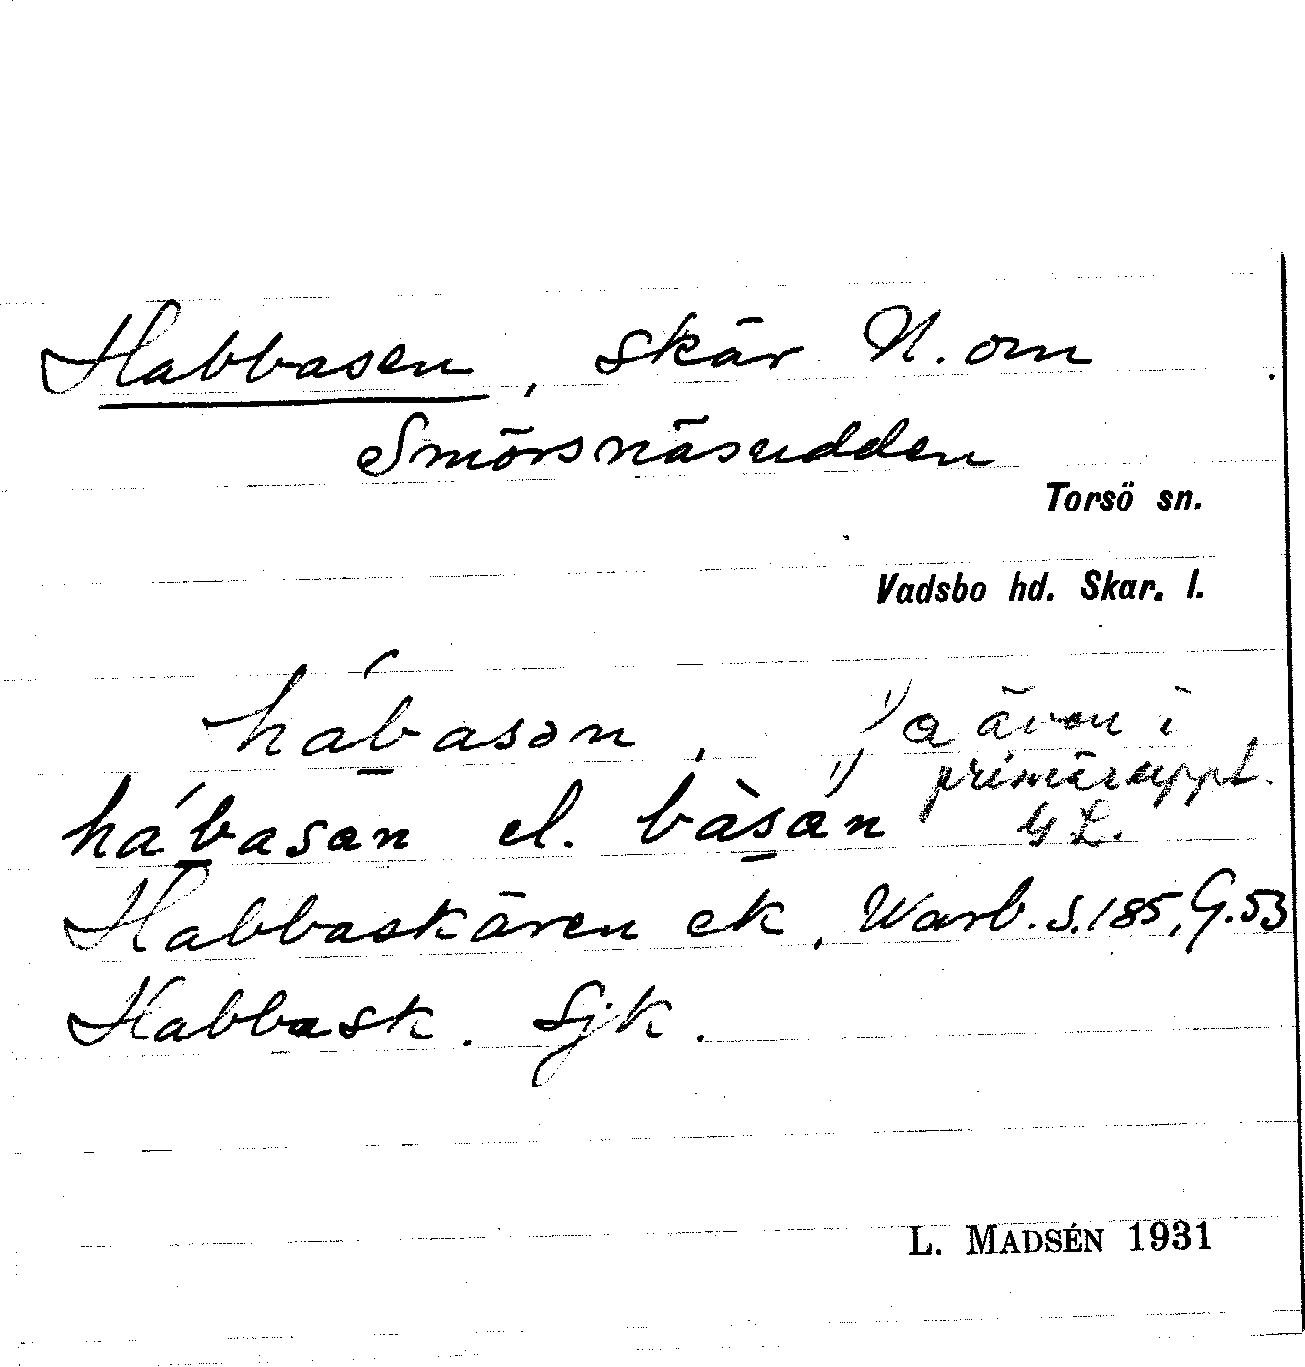 Habbasen, skär N. om
Smörsnäsudden
Torsö sn.
Vadsbo hd. Skar. l.
hábasən, ¹) a även i
primäruppt.
hábasan el. bàsàn ¹) GL.
Habbaskären ek, Warb. S. 185, G. 53
Habbask. Sjk.
L. MADSÉN 1931